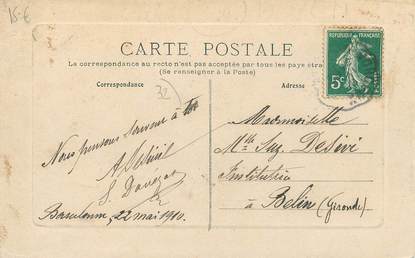 15 €
CARTE POSTALE
La correspondance au recto n'est pas acceptée par tous les pays étra
(Se renseigner à la Poste)
Correspondance
Adresse
REPUBLIQUE FRANÇAISE
5c
Nous pensons souvent à
A.
S.
22 mai 1910.
Mademoiselle
Mlle Suz. Desivi
Institutrice
à Belin (Gironde)